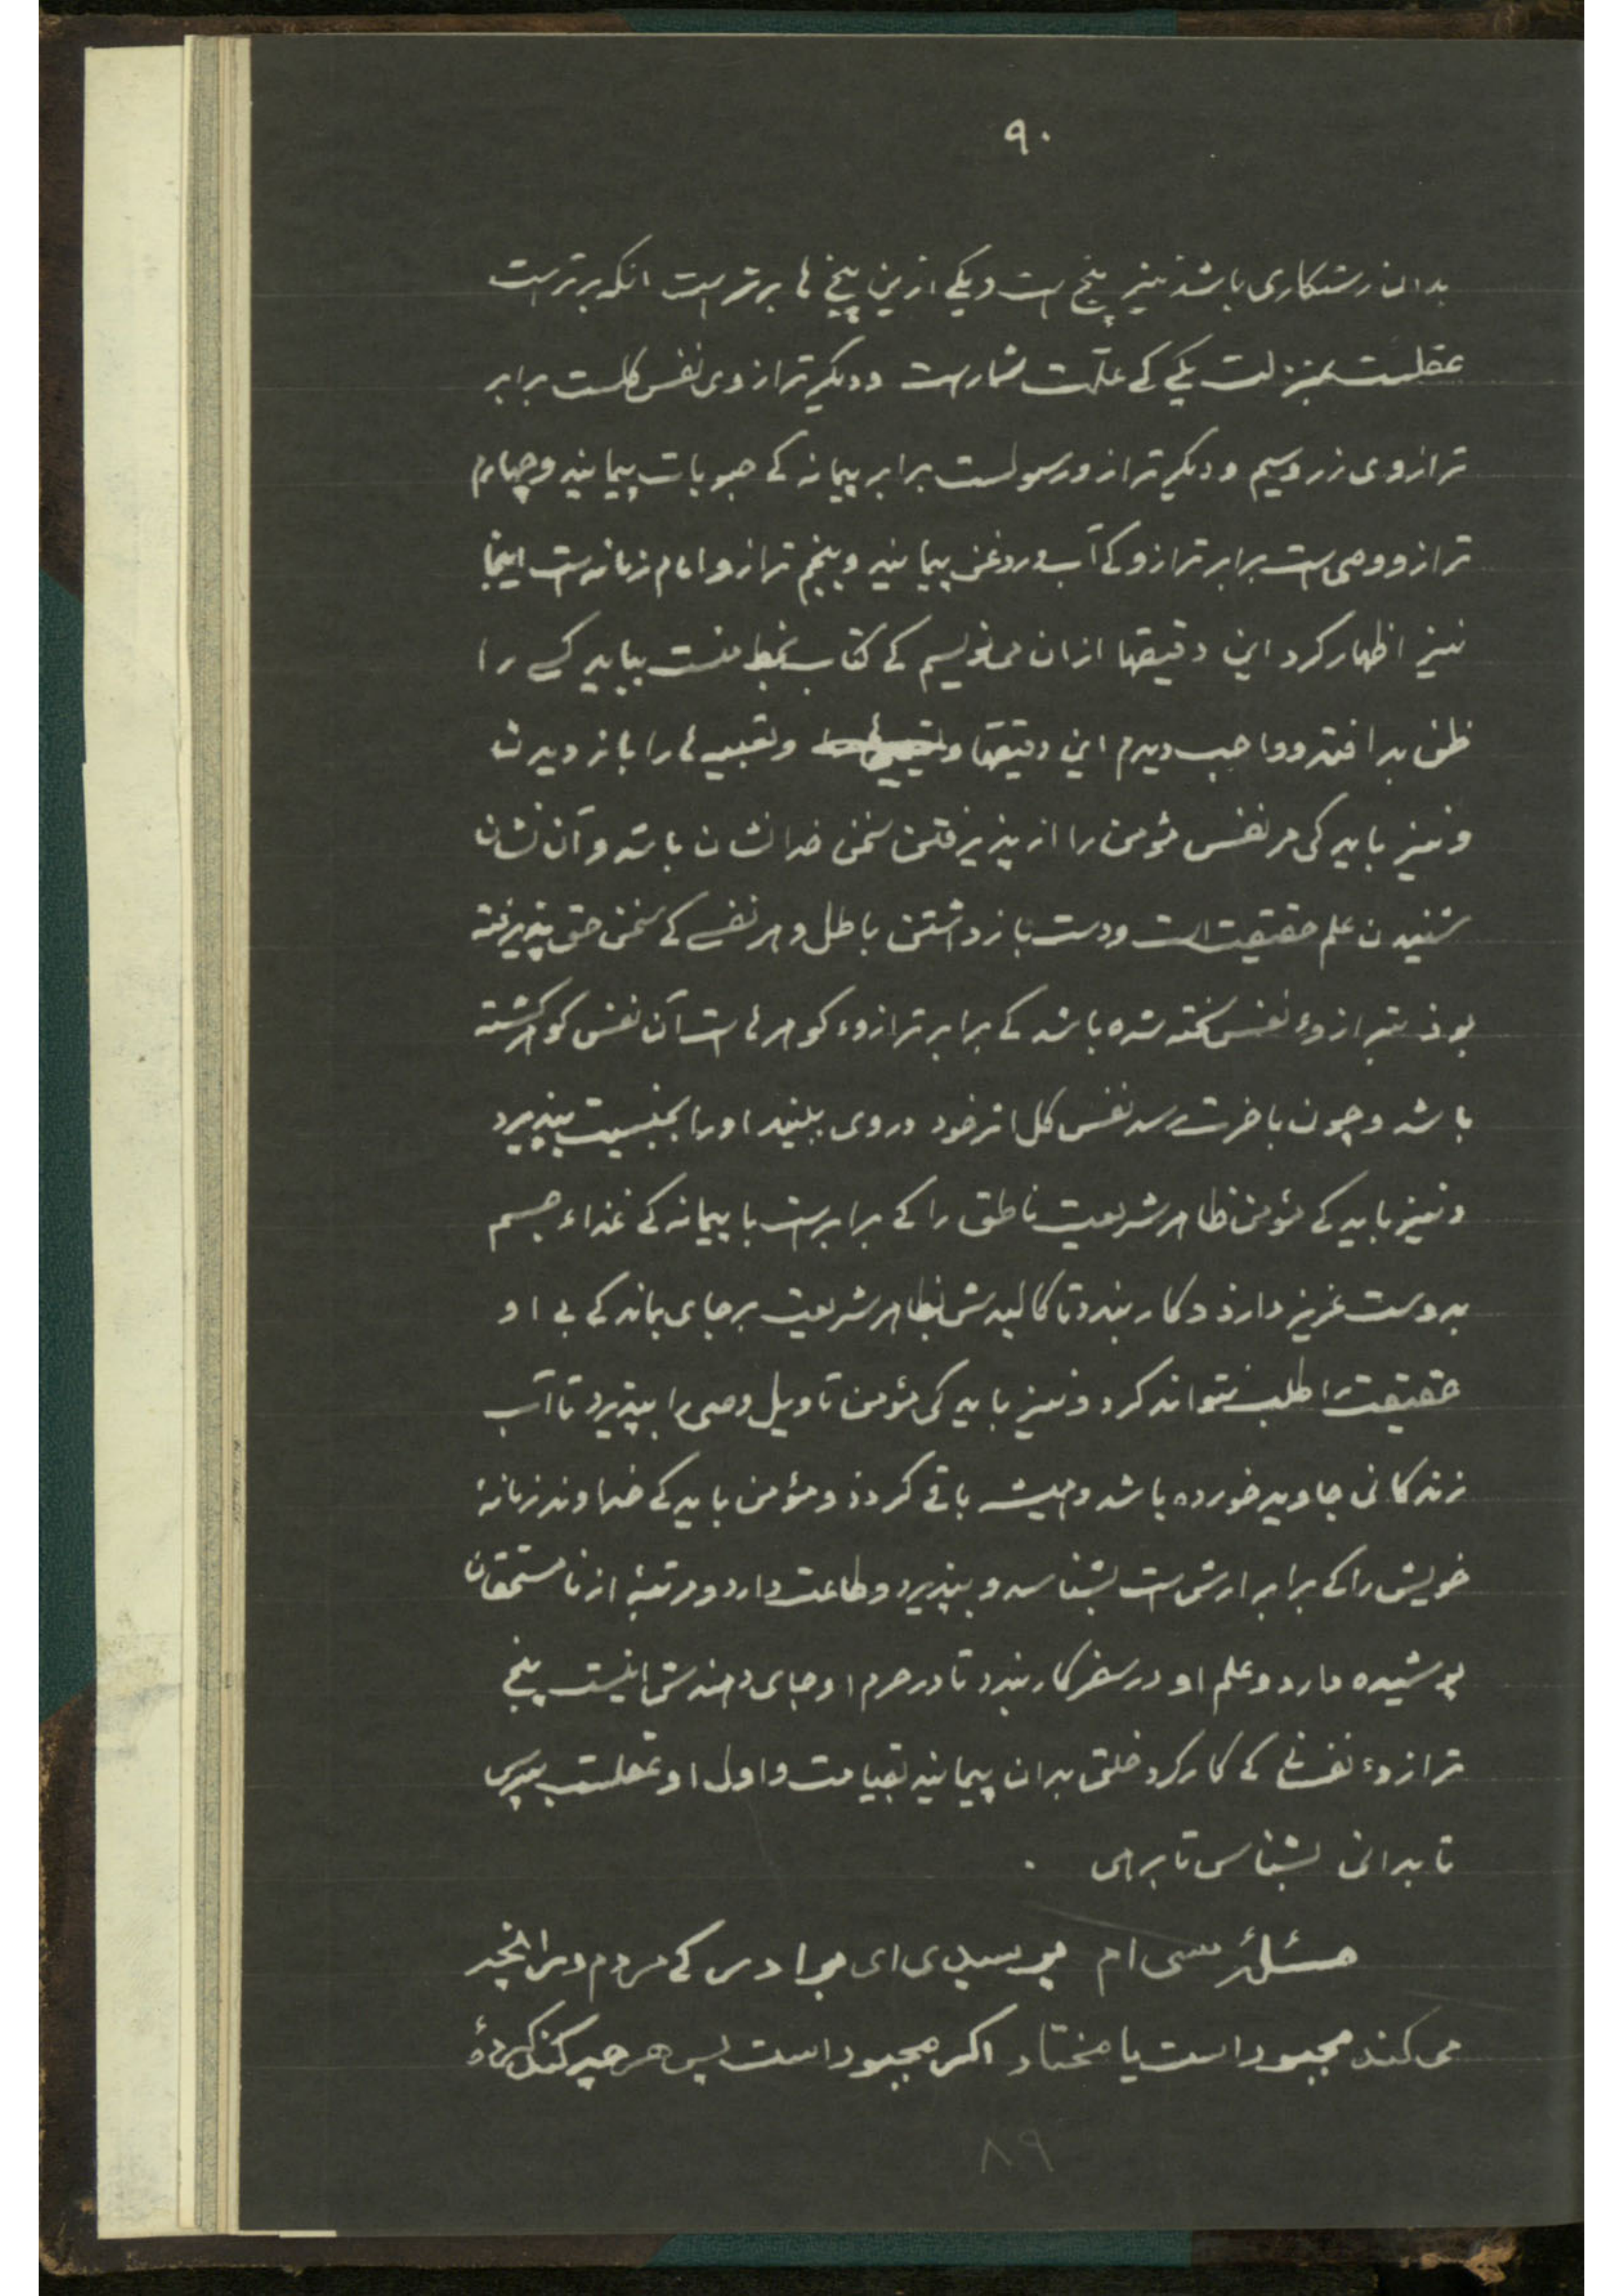 ۹۰
بدان رستکاری باشذ نیز پنج است و یکی ازین پنج ها برترست انکه برترست
عقلست بمنزلت یکی کے علّت شمارست و دیکر ترازوی نفس کلست برابر
ترازوی زر وسیم و دیکر ترازو رسولست برابر پیمانه کے حبوبات پیمایند وچهارم
ترازو وصی است برابر ترازو کے آب و روغن پیمایند و پنجم ترازو امام زمانه است اینجا
نیز اظهار کرد این دقیقها ازان می نویسم کے کتاب بخط منست بباید کسے را
ظن بد افتد و واجب دیدم این دقیقها و تعبیه ها را باز دیدن
و نیز باید کی مر نفس مؤمن را از پذیرفتن سخن خدا نشان باشد و آن نشان
شنیدن علم حقیقت است ودست بازداشتن باطل و هر نفسے کے سخن حق پذیرفته
بوذ بترازوء نفس سخته شده باشد کے برابر ترازوء کوهرهاست آن نفس کوهر کشته
باشد و چون باخرت رسد نفس کل اثر خود در وی ببیند او را بجنسیت بپذیرد
و نیز باید کے مؤمن ظاهر شریعت ناطق را کے برابرست با پیمانه کے غذاء جسم
بدوست عزیز دارذ و کار بندد تا کالبدش بظاهر شریعت برجای بماند کے بے او
حقیقت را طلب نتواند کرد و نیز باید کی مؤمن تاویل وصی را بپذیرد تا آب
زندکانی جاوید خورده باشد و همیشه باقے کردذ و مؤمن باید کے خداوند زمانهٔ
خویش را کے برابر ارش است بشناسد و بپذیرد و طاعت دارد و مرتبهٔ از نامستحقان
پوشیده دارد و علم او در سفر کار بندد تا در حرم او جای دهندش اینست پنج
ترازوء نفسانے کے کارکرد خلق بدان پیمایند بقیامت و اول او عقلست بپرس
تا بدانی بشناس تا برهی .
مسئلهٔ سی ام پرسیدی ای برادر کے مردم در آنچه
می کند مجبور است یا مختار اکر مجبور است پس هرچه کند کردهٔ
۸۹